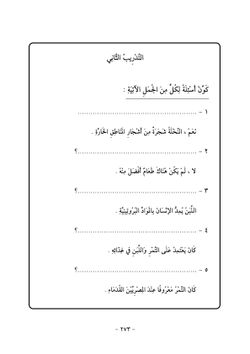 التَّدْرِيبُ الثَّانِي
كَوِّنْ أَسْئِلَةً لِكُلٍّ مِنَ الْجُمَلِ الْآتِيَةِ :
١ - ................................................ ؟
نَعَمْ ، النَّخْلَةُ شَجَرَةٌ مِنْ أَشْجَارِ الْمَنَاطِقِ الْحَارَّةِ .
٢ - ................................................ ؟
لا ، لَمْ يَكُنْ هُنَاكَ طَعَامٌ أَفْضَلَ مِنْهُ .
٣ - ................................................ ؟
اللَّبَنُ يُمِدُّ الْإِنْسَانَ بِالْمَوَادِّ الْبُرُوتِينِيَّةِ .
٤ - ................................................ ؟
كَانَ يَعْتَمِدُ عَلَى التَّمْرِ وَاللَّبَنِ فِي غِذَائِهِ .
٥ - ................................................ ؟
كَانَ التَّمْرُ مَعْرُوفًا عِنْدَ الْمِصْرِيِّينَ الْقُدَمَاءِ .
- ٢٧٣ -